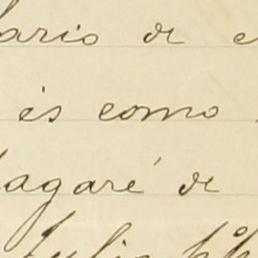 ario de
és como
pagaré de
Julio